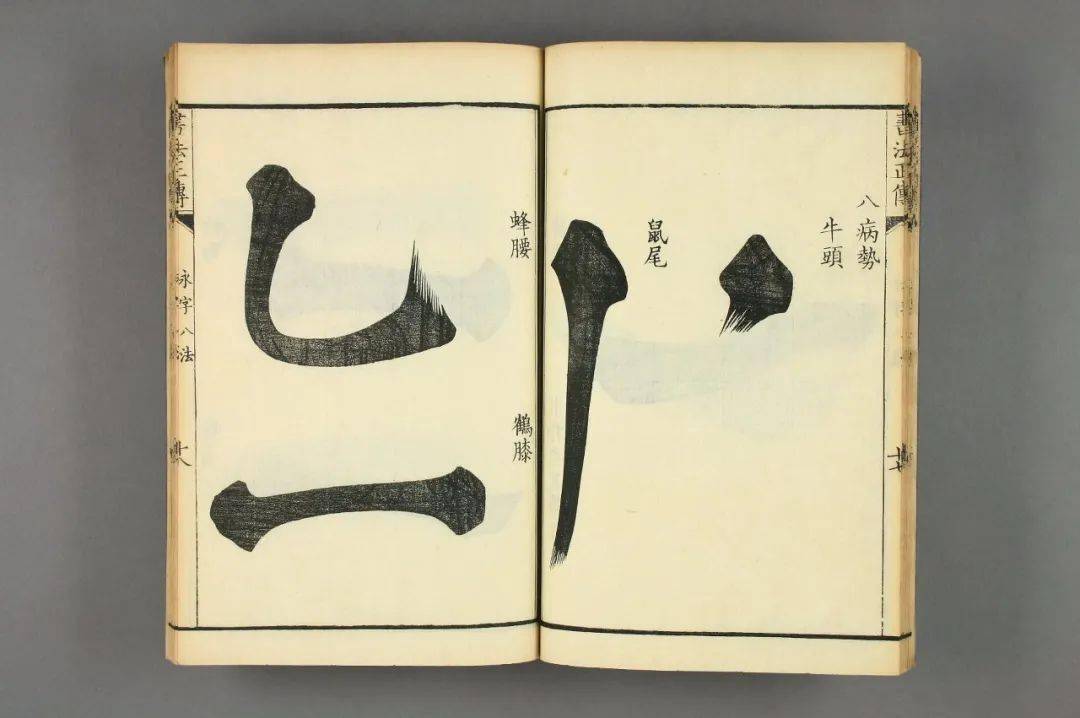 書法正傳
八病勢
牛頭
鼠尾
蜂腰
鶴膝
書法正傳
永字八法